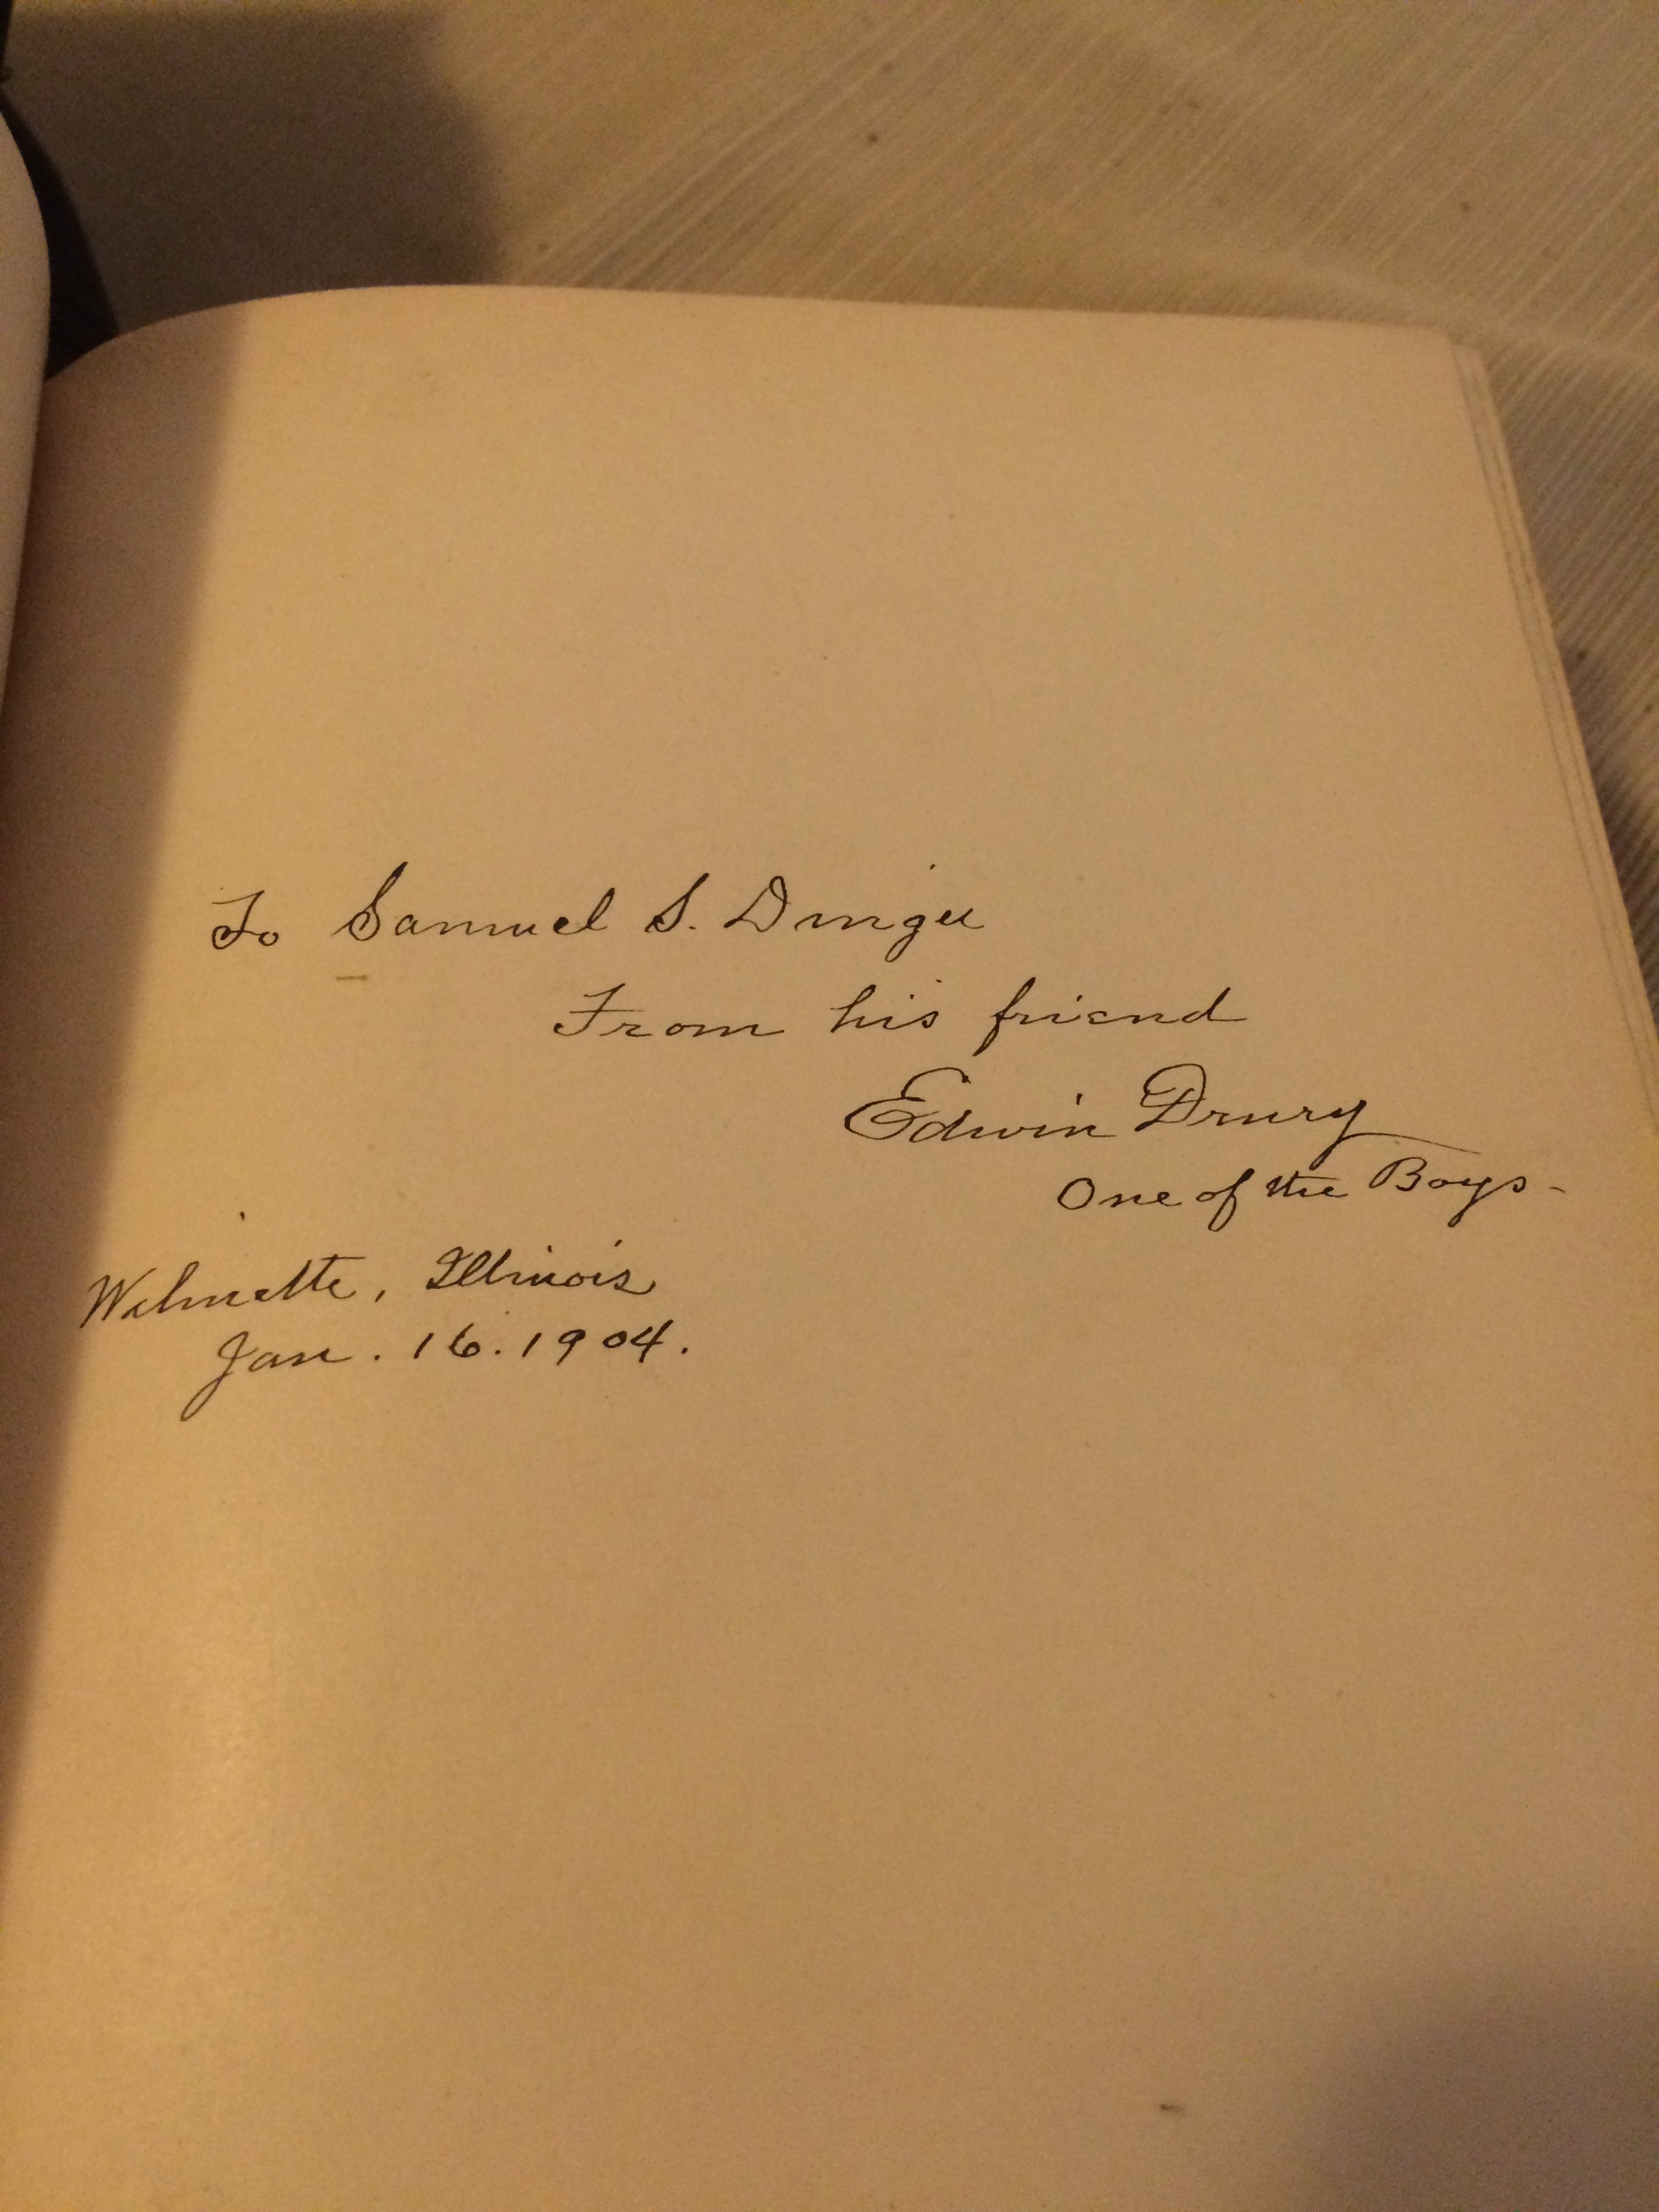 To Samuel S. Dingee
From his friend
Edwin Drury
One of the Boys-
Wilmette, Illinois
Jan. 16. 1904.